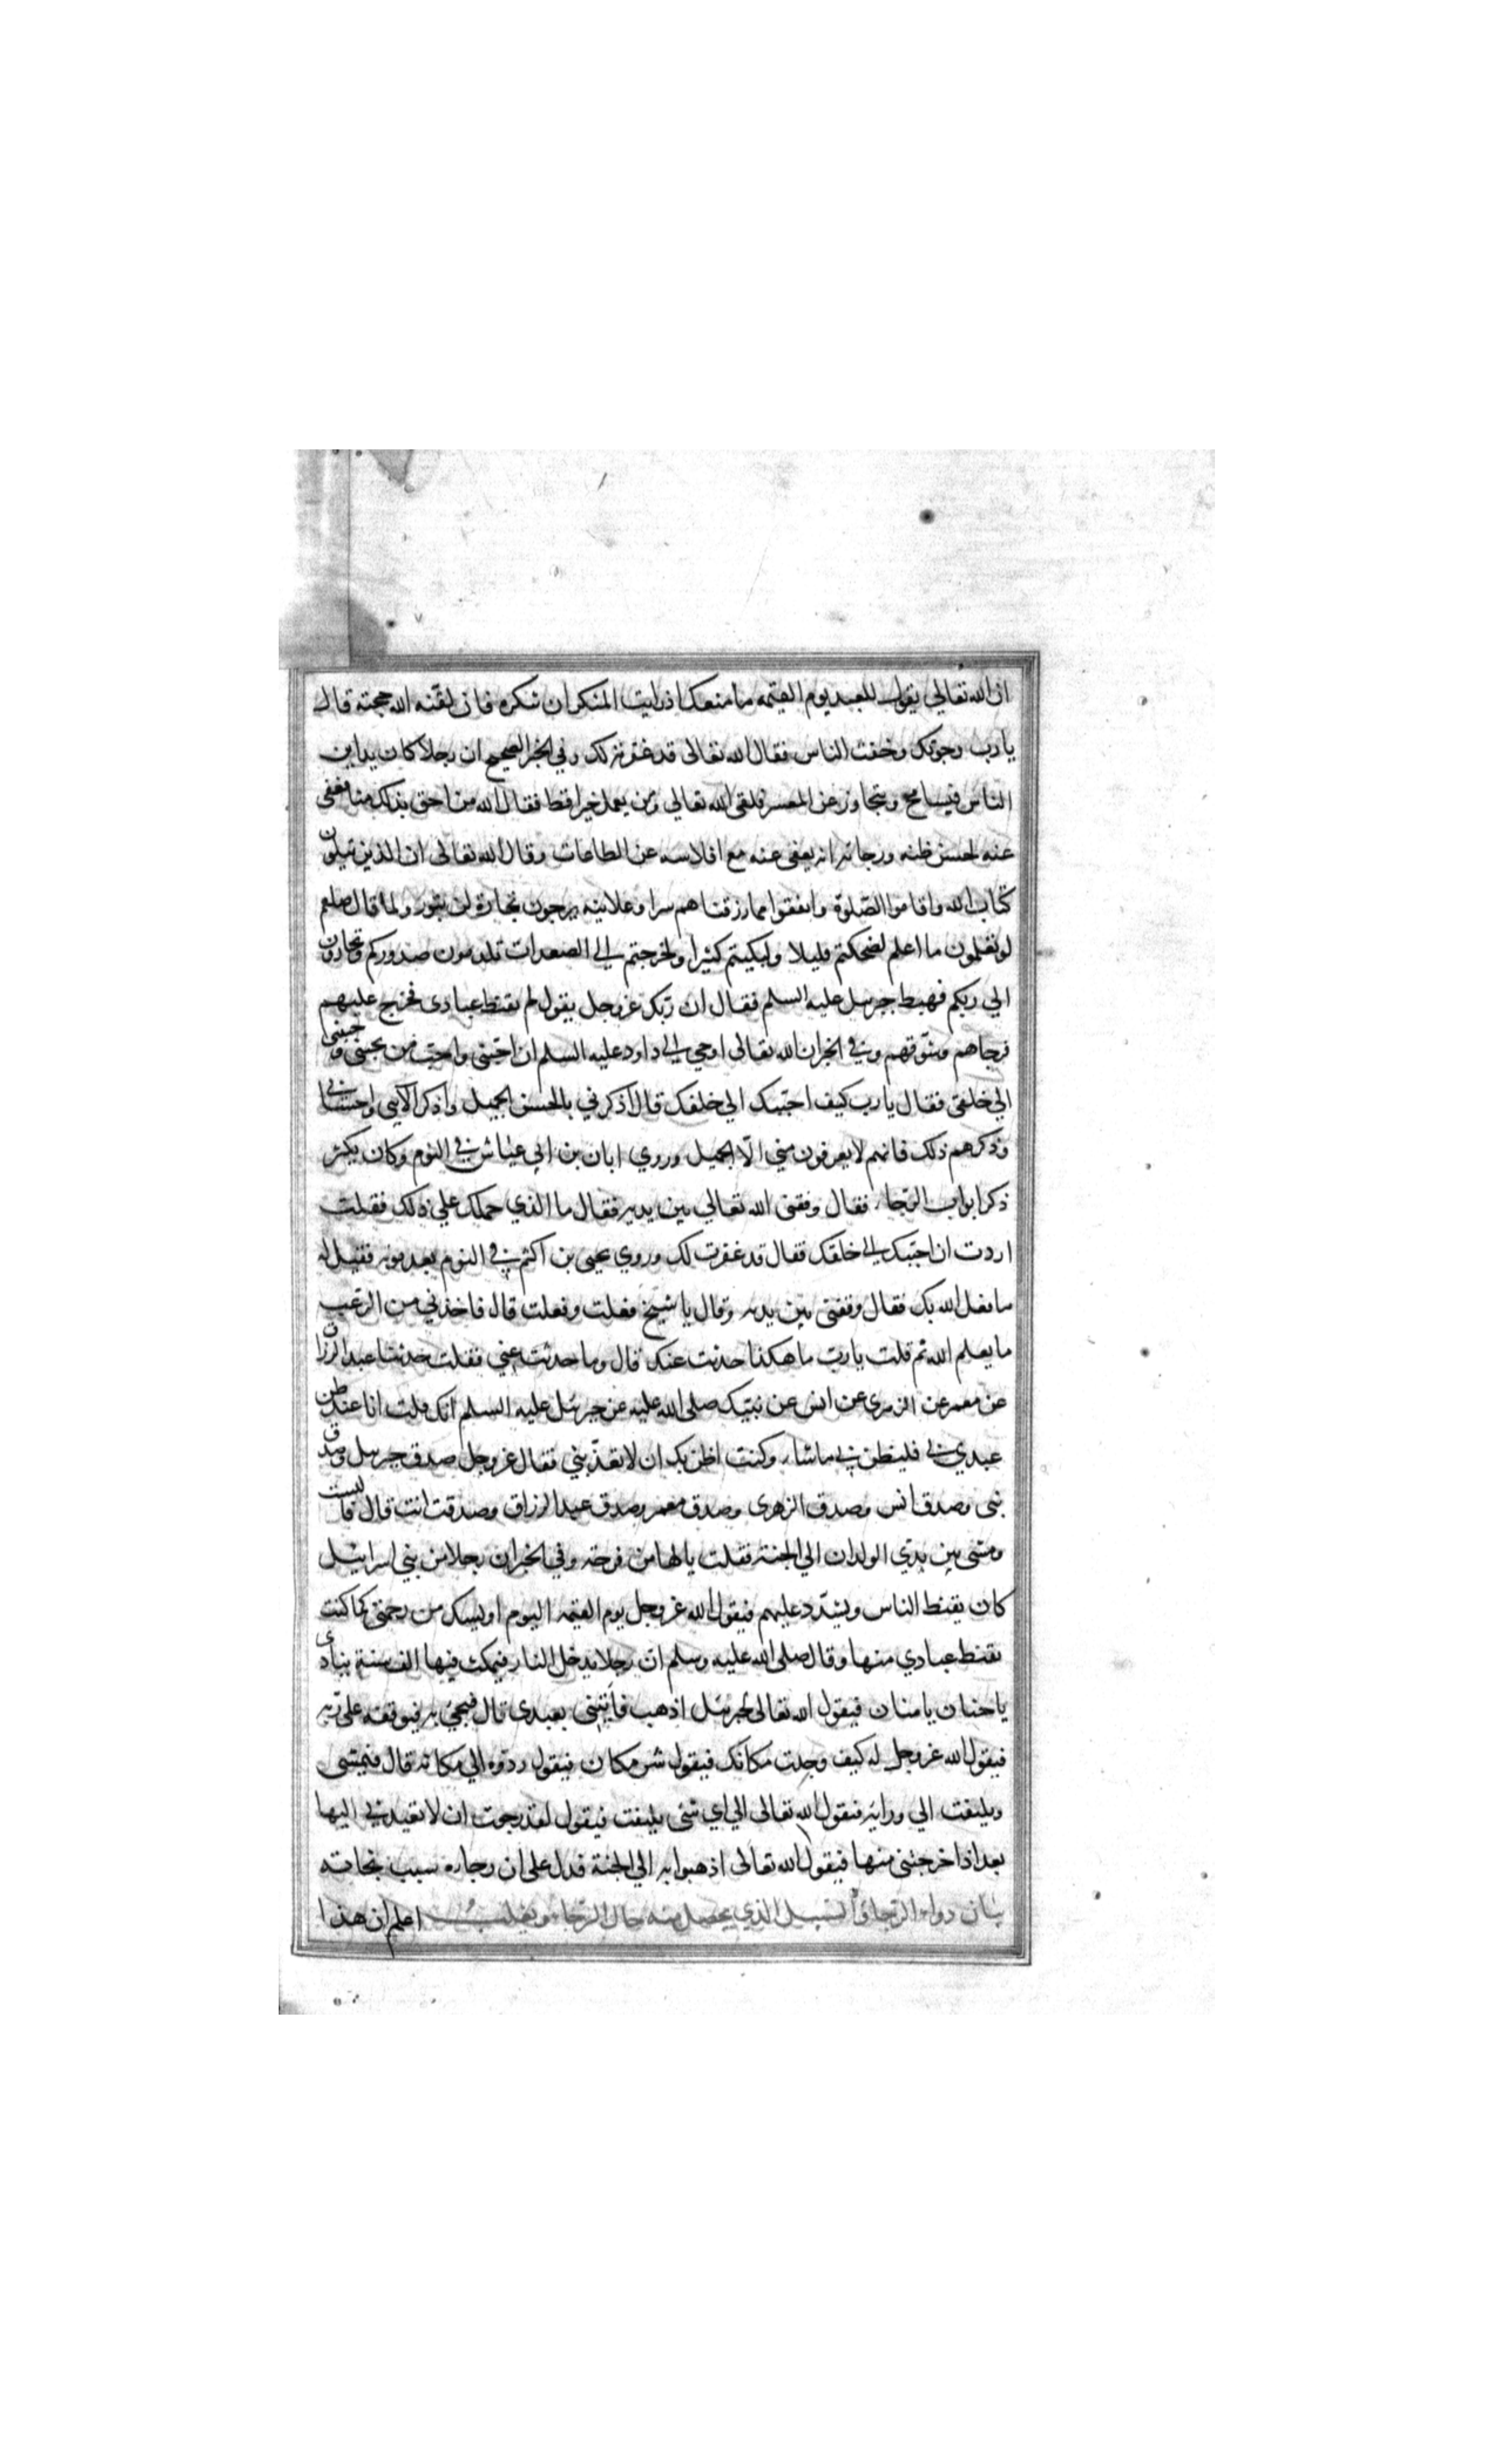 ان الله تعالي يقول للعبد يوم القيمه ما منعك اذ رايت المنكر ان تنكره فان لقنه الله حجته قال
يارب رجوتك وخفت الناس فقال الله تعالى قد غفرته لك وفي الخبر الصحيح ان رجلا كان يداين
الناس فيسامح ويتجاوز عن المعسر فلقى الله تعالي ولم يعمل خيرا قط فقال الله من احق بذلك منا فعفى
عنه لحسن ظنه ورجائه انه يعفى عنه مع افلاسه عن الطاعات وقال الله تعالى ان الذين يتلون
كتاب الله واقاموا الصلوة وانفقوا مما رزقناهم سرا وعلانيه يرجون تجارة لن تبور ولما قال صلعم
لو تعلمون ما اعلم لضحكتم قليلا ولبكيتم كثيرا ولخرجتم الي الصعدات تلدمون صدوركم وتجارون
الي ربكم فهبط جبرئيل عليه السلم فقال ان ربك عز وجل يقول لم تقنط عبادى فخرج عليهم
فرجاهم وشوقهم وفي الخبر ان الله تعالى اوحي الي داود عليه السلم ان احبني واحب من يحبني وحببني
الي خلقي فقال يارب كيف احببك الي خلقك قال اذكرني بالحسن الجميل واذكر الآئي واحساني
وذكرهم ذلك فانهم لا يعرفون مني الا الجميل وروي ابان بن ابي عياش في النوم وكان يكثر
ذكر ابواب الرجاء فقال وقفني الله تعالي بين يديه فقال ما الذي حملك علي ذلك فقلت
اردت ان احببك الي خلقك فقال قد غفرت لك وروي يحيى بن اكثم في النوم بعد موته فقيل له
ما فعل الله بك فقال وقفني بين يديه وقال يا شيخ فعلت وفعلت قال فاخذني من الرعب
ما يعلم الله ثم قلت يارب ما هكذا حدثت عنك قال وما حدثت عني فقلت حدثنا عبد الرزاق
عن معمر عن الزهرى عن انس عن نبيك صلى الله عليه عن جبرئيل عليه السلم انك قلت انا عند ظن
عبدي بي فليظن بي ما شاء وكنت اظن بك ان لا تعذبني فقال عز وجل صدق جبرئيل وصدق
نبي وصدق انس وصدق الزهرى وصدق معمر وصدق عبد الرزاق وصدقت انت قال فالبست
ومشى بين يدي الولدان الي الجنة فقلت يالها من فرحة وفي الخبر ان رجلا من بني اسرائيل
كان يقنط الناس ويشدد عليهم فيقول الله عز وجل يوم القيمه اليوم اويسك من رحمتي كما كنت
تقنط عبادي منها وقال صلى الله عليه وسلم ان رجلا يدخل النار فيمكث فيها الف سنة ينادي
يا حنان يا منان فيقول الله تعالى لجبرئيل اذهب فأتني بعبدى قال فيجئ به فيوقفه على ربه
فيقول الله عز وجل له كيف وجدت مكانك فيقول شر مكان فيقول ردوه الي مكانه قال فيمشى
ويلتفت الي ورائه فيقول الله تعالى الي اي شئ يلتفت فيقول لقد رجوت ان لا تعيدني اليها
بعد اذا خرجتني منها فيقول الله تعالى اذهبوا به الي الجنة فدل على ان رجاءه سبب نجاته
بيان دواء الرجاء والسبيل الذي يحصل منه حال الرجاء ويغلب اعلم ان هذا